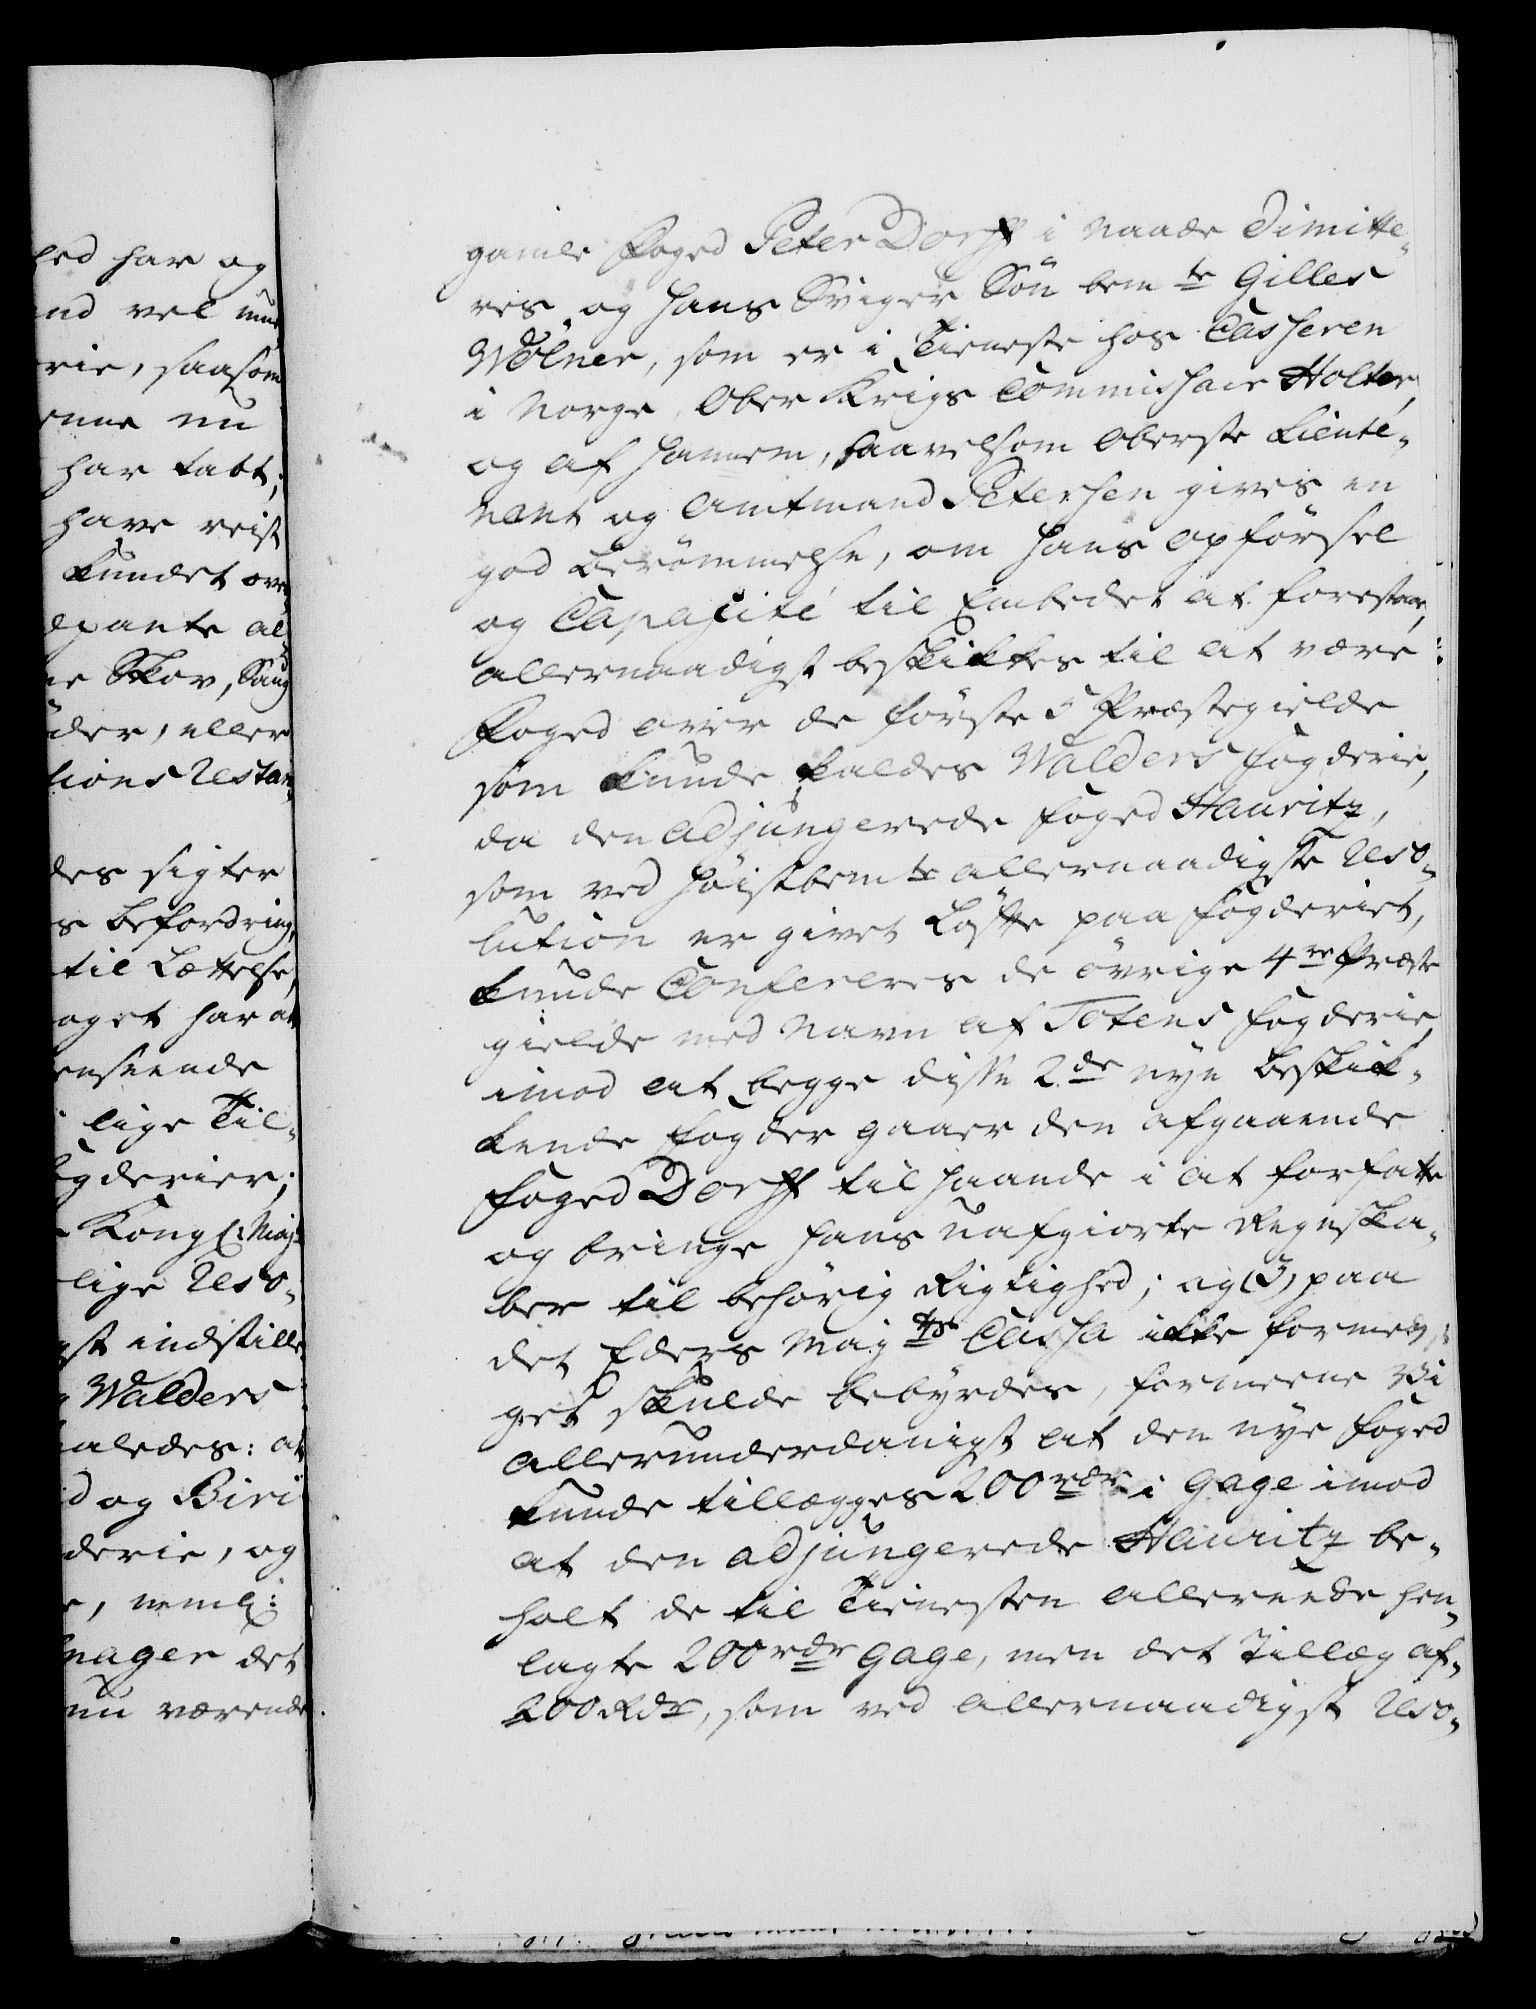 led har og
nd vel
rie, saasom
enne nu
har tabt;
have reist
kundet
af
Skov, Saug
der, eller
tions Restan-
des sigter
s befordring,
til Lettelse,
oget har at
enseende
lige Til-
gderier;
Kongl: Maj:
lige Reso-
gst indstille
Walders
aledes: at
d og Biri
derie, og
e, neml:
mager det
nu værende
gamle Foged Peter Dorff i Naade Dimitte-
res, og hans Sviger Søn bemte Gilles
Wølner, som er i Tieneste hos Casseren
i Norge, Ober Krigs Commissair Holter,
og af hannem, saavelsom Oberste Lieute-
nant og Amtmand Petersen gives en
god Berømmelse, om hans Opførsel
og Capacité til Embedet at forestaae,
allernaadigst beskikkes til at være
Foged over de første 5 Præstegielde
som kunde kaldes Walders Fogderie,
da den adjungerede Foged Hauritz,
som ved høistbemte allernaadigste Reso-
lution er givet Løfte paa Fogderiet,
kunde Confereres de øvrige 4re Præste
gielde med Navn af Totens Fogderie,
imod at begge disse 2de nye beskik-
kende Fogder gaaer den afgaaende
Foged Dorff til haande i at forfatte
og bringe hans uafgiorte Regnska-
ber til behørig Rigtighed; og 3) paa
det Eders Mayts Cassa ikke for meg-
get skulde bebyrdes, formeene Vi
allerunderdanigst at den nye Foged
kunde tillægges 200 rdr i Gage imod
at den adjungerede Hauritz be-
holt de til Tienesten allereede hen-
lagte 200 rdr Gage, men det Tillæg af
200 Rdr, som ved allernaadigst Reso-